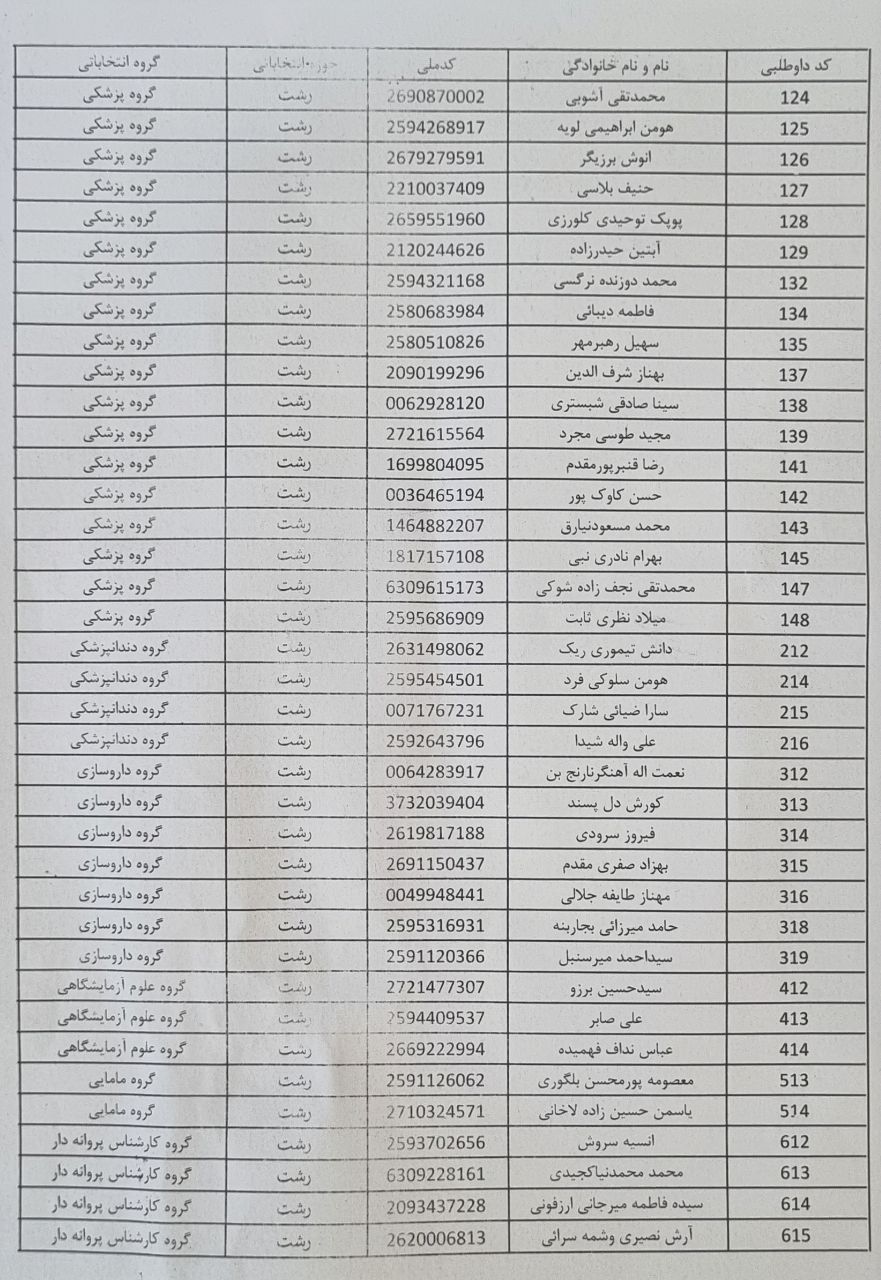 کد داوطلبی نام و نام خانوادگی کدملی حوزه انتخاباتی گروه انتخاباتی
124 محمدتقی آشوبی 2690870002 رشت گروه پزشکی
125 هومن ابراهیمی لویه 2594268917 رشت گروه پزشکی
126 انوش برزیگر 2679279591 رشت گروه پزشکی
127 حنیف بلاسی 2210037409 رشت گروه پزشکی
128 پوپک توحیدی کلورزی 2659551960 رشت گروه پزشکی
129 آبتین حیدرزاده 2120244626 رشت گروه پزشکی
132 محمد دوزنده نرگسی 2594321168 رشت گروه پزشکی
134 فاطمه دیبائی 2580683984 رشت گروه پزشکی
135 سهیل رهبرمهر 2580510826 رشت گروه پزشکی
137 بهناز شرف الدین 2090199296 رشت گروه پزشکی
138 سینا صادقی شبستری 0062928120 رشت گروه پزشکی
139 مجید طوسی مجرد 2721615564 رشت گروه پزشکی
141 رضا قنبرپورمقدم 1699804095 رشت گروه پزشکی
142 حسن کاوک پور 0036465194 رشت گروه پزشکی
143 محمد مسعودنیارق 1464882207 رشت گروه پزشکی
145 بهرام نادری نبی 1817157108 رشت گروه پزشکی
147 محمدتقی نجف زاده شوکی 6309615173 رشت گروه پزشکی
148 میلاد نظری ثابت 2595686909 رشت گروه پزشکی
212 دانش تیموری ریک 2631498062 رشت گروه دندانپزشکی
214 هومن سلوکی فرد 2595454501 رشت گروه دندانپزشکی
215 سارا ضیائی شارک 0071767231 رشت گروه دندانپزشکی
216 علی واله شیدا 2592643796 رشت گروه دندانپزشکی
312 نعمت اله آهنگرنارنج بن 0064283917 رشت گروه داروسازی
313 کورش دل پسند 3732039404 رشت گروه داروسازی
314 فیروز سرودی 2619817188 رشت گروه داروسازی
315 بهزاد صفری مقدم 2691150437 رشت گروه داروسازی
316 مهناز طایفه جلالی 0049948441 رشت گروه داروسازی
318 حامد میرزائی بجاربنه 2595316931 رشت گروه داروسازی
319 سیداحمد میرسنبل 2591120366 رشت گروه داروسازی
412 سیدحسین برزو 2721477307 رشت گروه علوم آزمایشگاهی
413 علی صابر 2594409537 رشت گروه علوم آزمایشگاهی
414 عباس نداف فهمیده 2669222994 رشت گروه علوم آزمایشگاهی
513 معصومه پورمحسن بلگوری 2591126062 رشت گروه مامایی
514 یاسمن حسین زاده لاخانی 2710324571 رشت گروه مامایی
612 انسیه سروش 2593702656 رشت گروه کارشناس پروانه دار
613 محمد محمدنیاکجیدی 6309228161 رشت گروه کارشناس پروانه دار
614 سیده فاطمه میرجانی ارزفونی 2093437228 رشت گروه کارشناس پروانه دار
615 آرش نصیری وشمه سرائی 2620006813 رشت گروه کارشناس پروانه دار